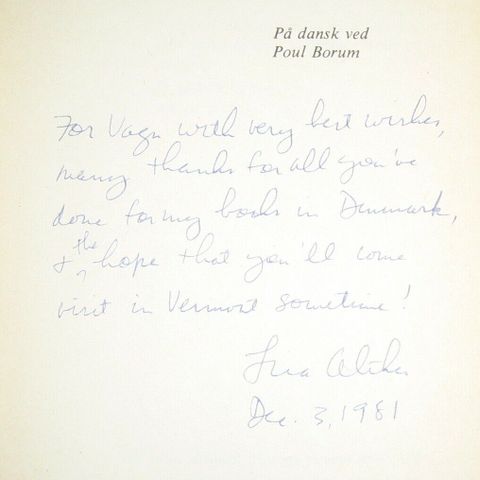 På dansk ved
Poul Borum
For Vagn with very best wishes,
many thanks for all you've
done for my books in Denmark,
& the hope that you'll come
visit in Vermont sometime!
Dec. 3, 1981